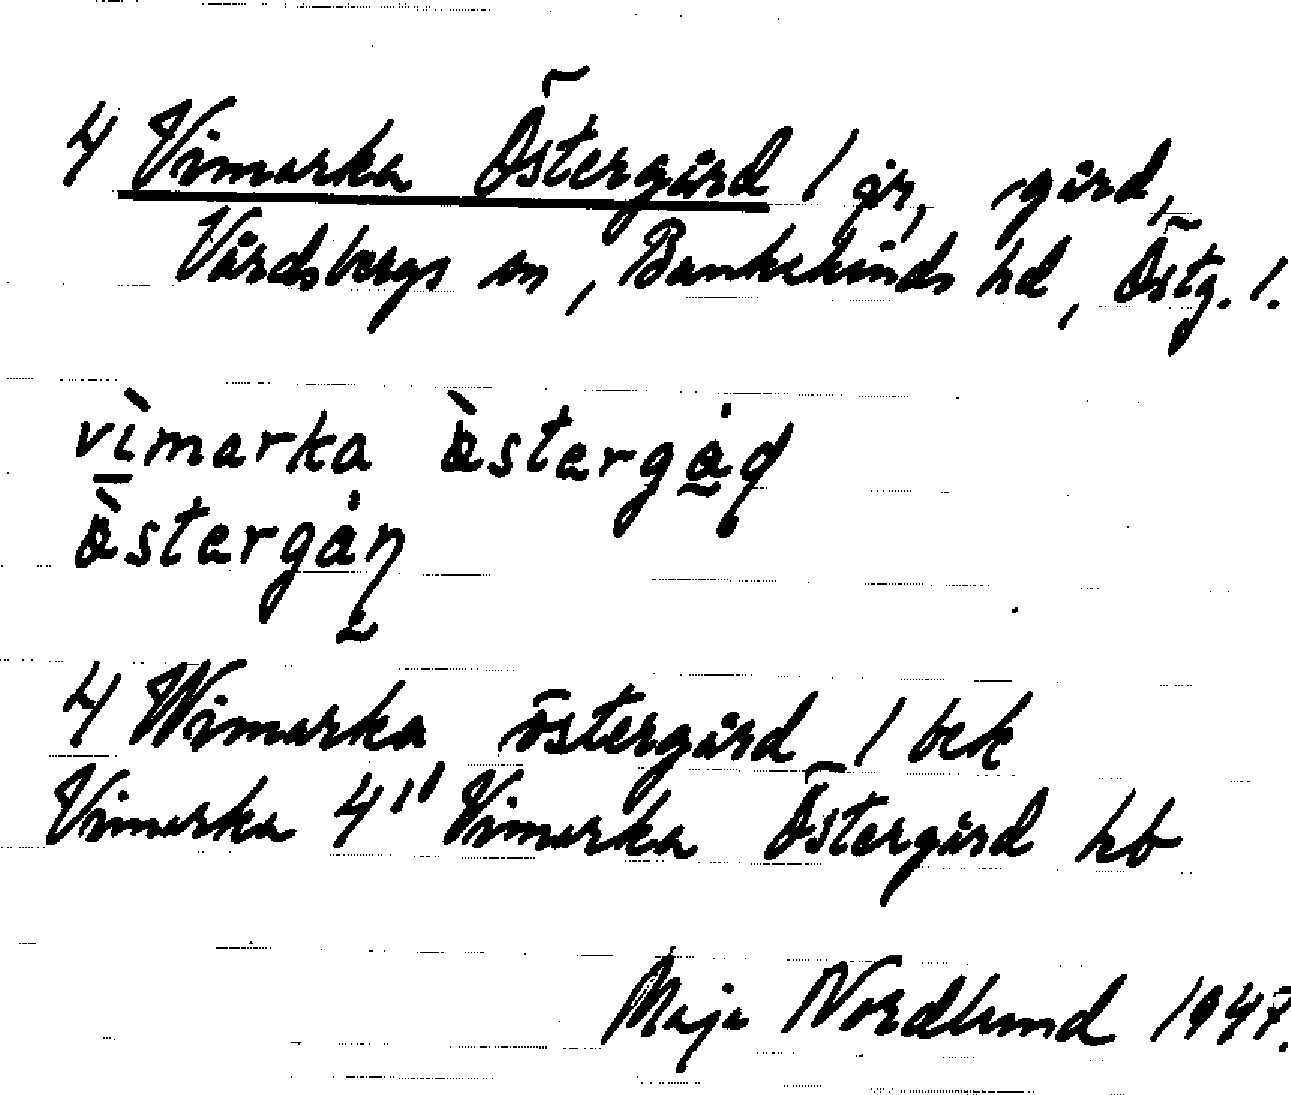 4 Vimarka Östergård / jr, gård,
Vårdsbergs sn, Bankekinds hd, Östg. l.
vìmarka ö̀stergåd
ö̀stergån
4 Wimarka östergård / bek
Vimarka 4" Vimarka Östergård hb
Maja Nordlund 1947.